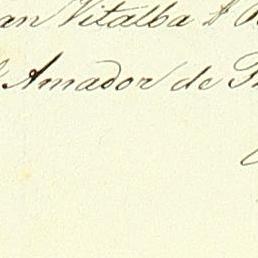 an Vitalba
Amador de